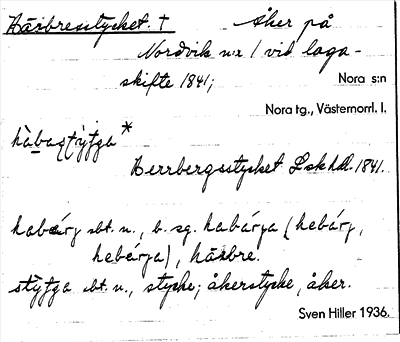 Härbresstycket. † Åker på
Nordvik n:r 1 vid laga-
skifte 1841;
Nora s:n
Nora tg., Västernorrl. l.
*
Herrbergsstycket Lskhdl. 1841.
sbt. n., b. sg. habárja (hebárj,
hebárja), härbre.
sbt. n., stycke; åkerstycke, åker.
Sven Hiller 1936.